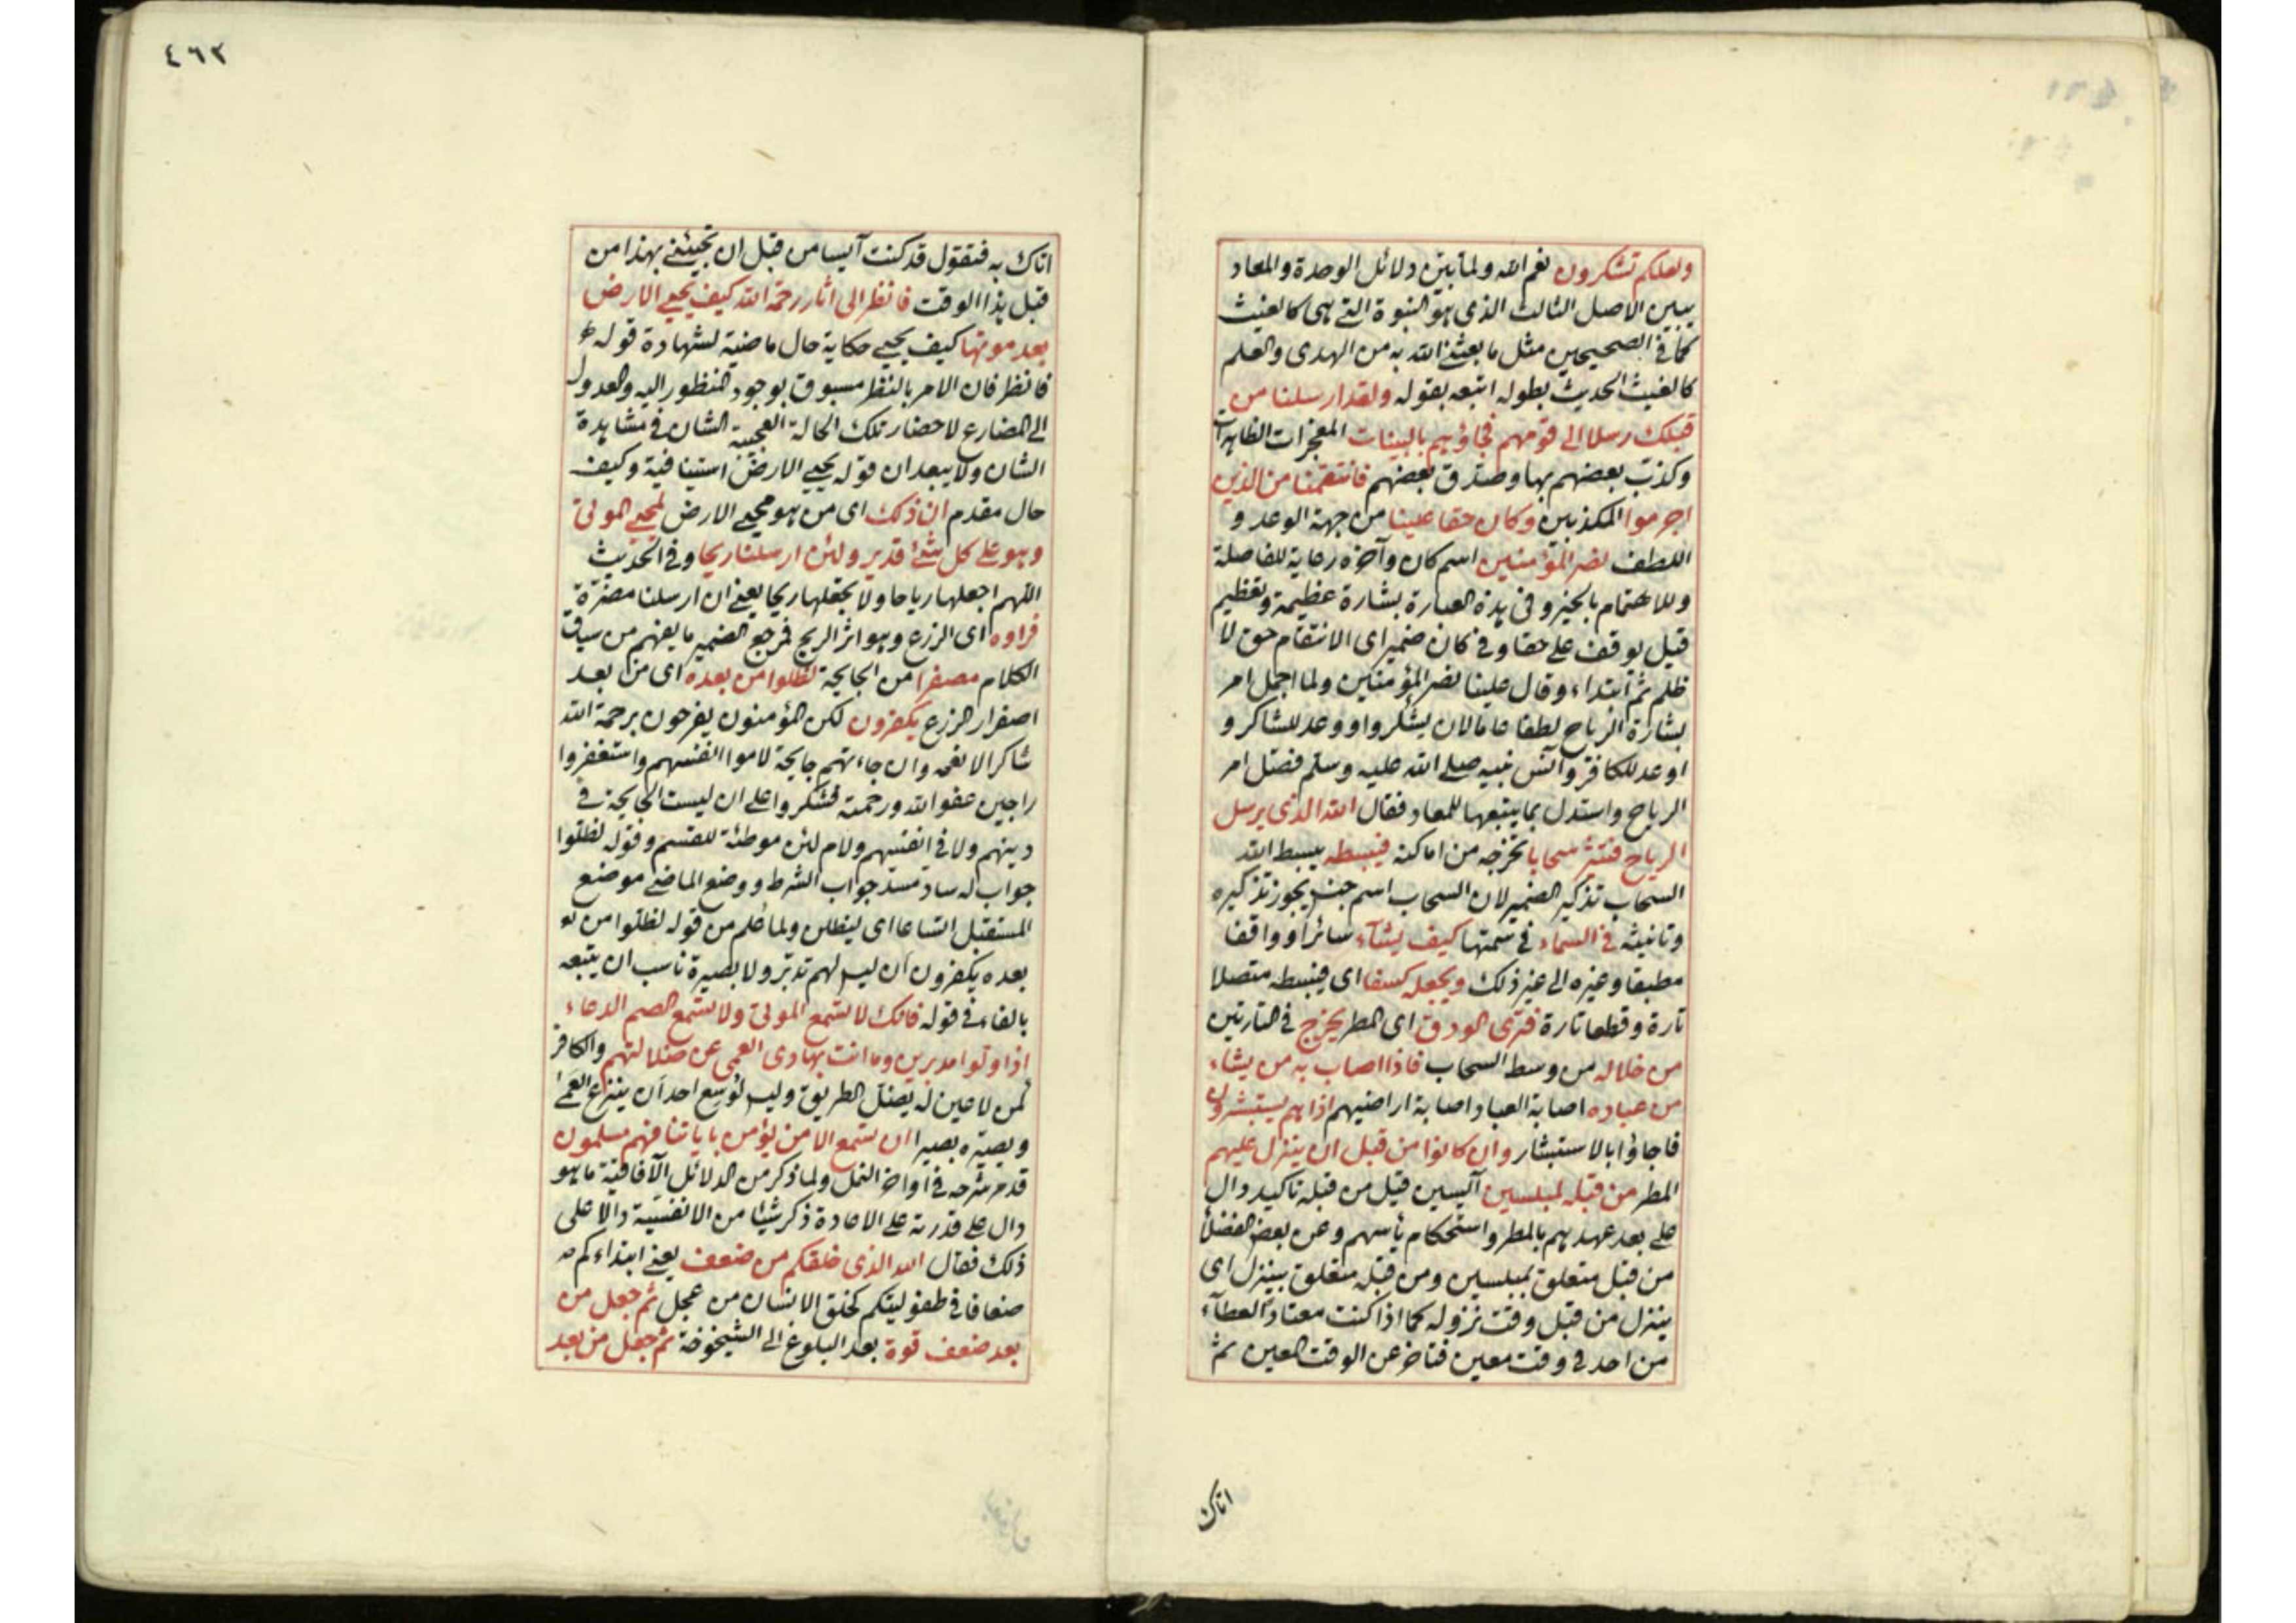 ولعلكم تشكرون نعم الله ولما بين دلائل الوحدة والمعاد
يبين الاصل الثالث الذى هو النبوة التى هى كالغيث
كما فى الصحيحين مثل ما بعثنى الله به من الهدى والعلم
كالغيث الحديث بطوله اتبعه بقوله ولقد ارسلنا من
قبلك رسلا الى قومهم فجاؤهم بالبينات المعجزات الظاهرات
وكذب بعضهم بها وصدق بعضهم فانتقمنا من الذين
اجرموا المكذبين وكان حقا علينا من جهة الوعد و
اللطف نصر المؤمنين اسم كان وآخره رعاية للفاصلة
وللاهتمام بالخبر وفى هذه العبارة بشارة عظيمة وتعظيم
قيل يوقف على حقا وفى كان ضمير اى الانتقام حق لا
ظلم ثم ابتداء وقال علينا نصر المؤمنين ولما اجمل امر
بشارة الرياح لطفا عاما لان يشكروا ووعد للشاكر و
اوعد للكافر وآنس نبيه صلى الله عليه وسلم فصل امر
الرياح واستدل بما يتبعها للمعاد فقال الله الذى يرسل
الرياح فتثير سحابا تخرجه من اماكنه فيبسطه يبسط الله
السحاب تذكير الضمير لان السحاب اسم جنس يجوز تذكيره
وتانيثه فى السماء فى سمتها كيف يشآء سائرا وواقفا
مطبقا وغيره الى غير ذلك ويجعله كسفا اى فيبسطه متصلا
تارة وقطعا تارة فترى الودق اى المطر يخرج فى التارتين
من خلاله من وسط السحاب فاذا اصاب به من يشاء
من عباده اصابة العباد اصابة اراضيهم اذا هم يستبشرون
فاجاؤا بالاستبشار وان كانوا من قبل ان ينزل عليهم
المطر من قبله لمبلسين آئيسين قيل من قبله تاكيد دال
على بعد عهدهم بالمطر واستحكام ياسهم وعن بعض الفضلا
من قبل متعلق بمبلسين ومن قبله متعلق بينزل اى
ينزل من قبل وقت نزوله كما اذا كنت معتاد العطآء
من احد فى وقت معين فتاخر عن الوقت المعين ثم
اتاك
٤٦٢
اتاك به فتقول قد كنت آيسا من قبل ان تجيئنى بهذا من
قبل هذا الوقت فانظر الى اثار رحمة الله كيف يحيى الارض
بعد موتها كيف يحيى حكاية حال ماضية لشهادة قوله
فانظر فان الامر بالنظر مسبوق بوجود المنظور اليه والعدول
الى المضارع لاحضار تلك الحالة العجيبة الشان فى مشاهدة
الشان ولا يبعد ان قوله يحيى الارض استينافية وكيف
حال مقدم ان ذلك اى من هو محيى الارض لمحيى الموتى
وهو على كل شئ قدير ولئن ارسلنا ريحا وفى الحديث
اللهم اجعلها رياحا ولا تجعلها ريحا يعنى ان ارسلنا مضرة
فراوه اى الزرع وهو اثر الريح فمرجع الضمير ما يفهم من سياق
الكلام مصفرا من الجايحة لظلوا من بعده اى من بعد
اصفرار الزرع يكفرون لكن المؤمنون يفرحون برحمة الله
شاكرا لانعمه وان جاءتهم جايحة لاموا انفسهم واستغفروا
راجين عفو الله ورحمته فشكروا على ان ليست الجايحة فى
دينهم ولا فى انفسهم ولام لئن موطئة للقسم وقوله لظلوا
جواب له ساد مسد جواب الشرط ووضع الماضى موضع
المستقبل اتساعا اى ليظلن ولما علم من قوله لظلوا من
بعده يكفرون ان ليس لهم تدبر ولا بصيرة ناسب ان يتبعه
بالفاء فى قوله فانك لا تسمع الموتى ولا تسمع الصم الدعاء
اذا ولوا مدبرين وما انت بهادى العمى عن ضلالتهم والكافر
كمن لا عين له يضل الطريق وليس لوسع احد ان ينزع العمى
ويصيره بصيرا ان تسمع الا من يؤمن باياتنا فهم مسلمون
قد مر شرحه فى اواخر النمل ولما ذكر من الدلائل الآفاقية ما هو
دال على قدرته على الاعادة ذكر شيئا من الانفسية دالا على
ذلك فقال الله الذى خلقكم من ضعف يعنى ابتداءكم
ضعافا فى طفوليتكم كخلق الانسان من عجل ثم جعل من
بعد ضعف قوة بعد البلوغ الى الشيخوخة ثم جعل من بعد